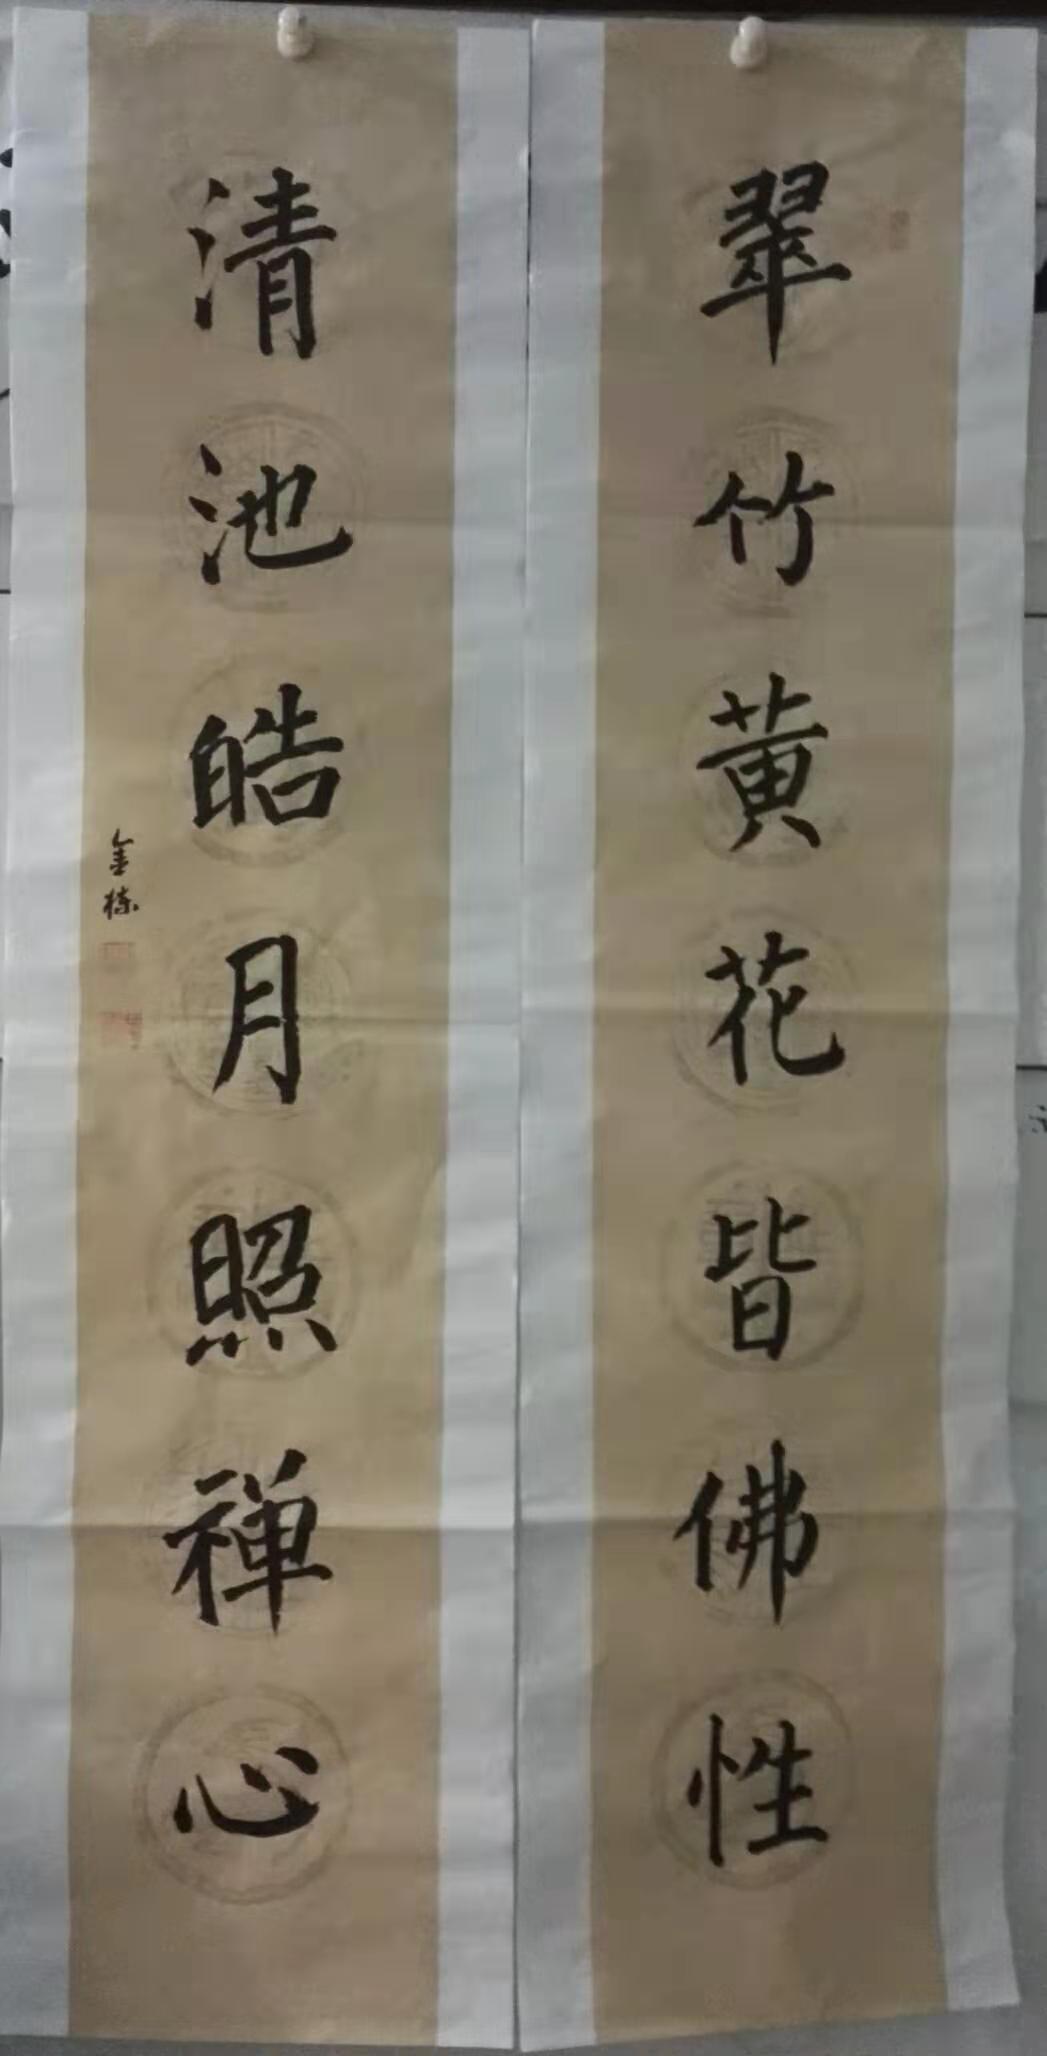 翠竹黄花皆佛性
清池皓月照禅心
金栋